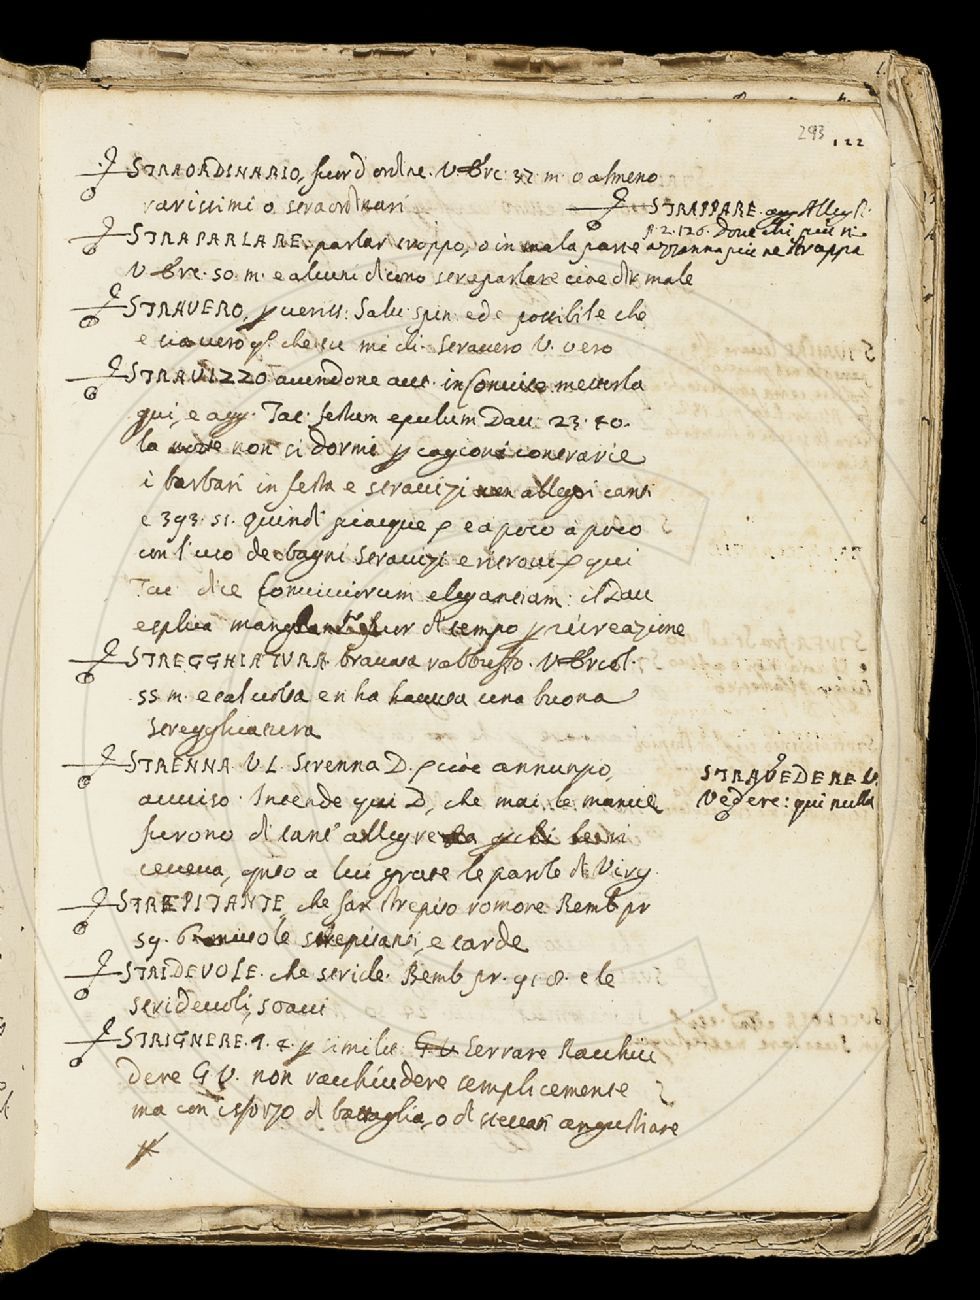 293
122
STRAORDINARIO, fuor d ordine. V Erc. 37. m. o almeno
rarissimi o straordinari
STRAPPARE. Alleg R.
p. 2. 126. Dove chi più
n'azzanna più ne strappa
STRAPARLARE, parlar troppo, o in mala parte
V Erc. 50. m. e alcuni dicono straparlare cioè dir male
STRAVERO, veriss: Salv spin: ed è possibile che
e sia vero che tu mi di. Stravero V. vero
STRAVIZZO avendone aut. in Convito metterla
qui, e agg. Tac. festum epulum Dav. 23. 40.
la notte non si dormì p cagioni contrarie
i barbari in festa e stravizi allegri canti
e 393. 51. quindi piacque e a poco a poco
con l'uso de bagni stravizi e ritrovi qui
Tac. dice Conviviorum elegantiam: il Dav
esplica fuor di tempo p ricreazione
STREGGHIATURA. bravata rabbuffo. V Ercol.
55 m. e talvolta e n ha havuta una buona
stregghiatura
STRENNA. V L. Strenna D. cioè annunzo,
avviso. Intende qui D, che mai le
furono di tant' allegrezza
teneva, quto a lui grate le parole di Virg.
STRAVEDERE V.
Vedere: qui nulla
STREPITANTE, che fa strepito romore Bemb pr
59. strepitanti, e tarde
STRIDEVOLE. che stride. Bemb pr. 918. e le
stridevoli, soavi
STRIGNERE. 9. 4. p similit. G V Serrare Racchiu
dere G V. non racchiudere semplicemente
ma con isforzo di battaglia, o di steccati angustiare